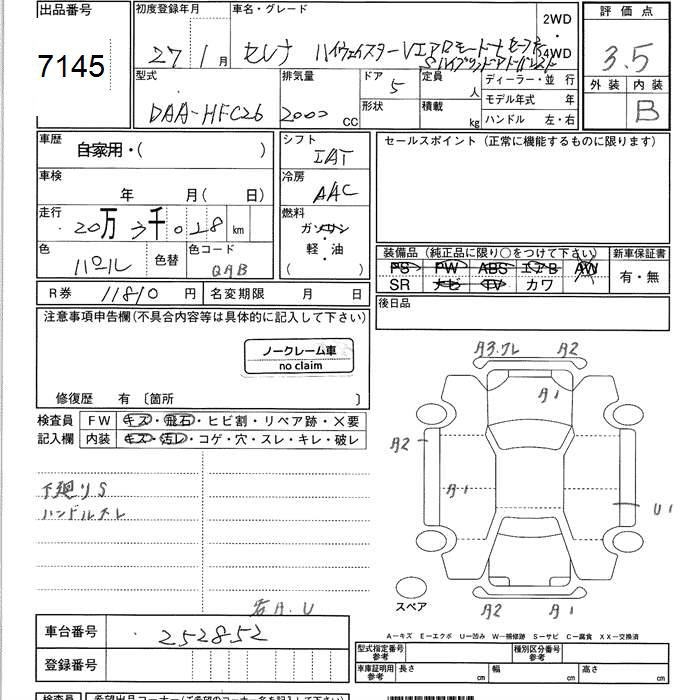 出品番号
7145
初度登録年月
27 1月
車名・グレード
セレナ ハイウェイスターVエアロモード+セーフティ
Sハイブリッド アドバンスド
2WD
4WD
評価点
3.5
外装 内装
B
型式
DAA-HFC26
排気量
2000 CC
ドア
5
形状
定員
人
積載
kg
ディーラー・並行
モデル年式 年
ハンドル 左・右
車歴
自家用・( )
シフト
IAT
セールスポイント (正常に機能するものに限ります)
車検
年 月( 日)
冷房
AAC
走行
20万3千028 km
燃料
ガソリン
軽・油
( )
色
パール
色替
色コード
QAB
装備品 (純正品に限り○をつけて下さい)
PS PW ABS エアB AW
SR ナビ TV カワ
新車保証書
有・無
R券 11810 円
名変期限 月 日
後日品
注意事項申告欄(不具合内容等は具体的に記入して下さい)
ノークレーム車
no claim
修復歴 有 〔箇所 〕
検査員
記入欄
FW キズ・飛石・ヒビ割・リペア跡・×要
内装 キズ・汚レ・コゲ・穴・スレ・キレ・破レ
下廻りS
ハンドルスレ
右A.U
A3.ワレ A2
A1
A2
A1
U1
スペア
A2 A1
A-キズ E-エクボ U-凹み W-補修跡 S-サビ C-腐食 XX-交換済
車台番号
252852
登録番号
型式指定番号
参考
種別区分番号
参考
車庫証明用
参考
長さ cm 幅 cm 高さ cm
検査員
希望出品コーナー(ご希望のコーナー名を記入して下さい)